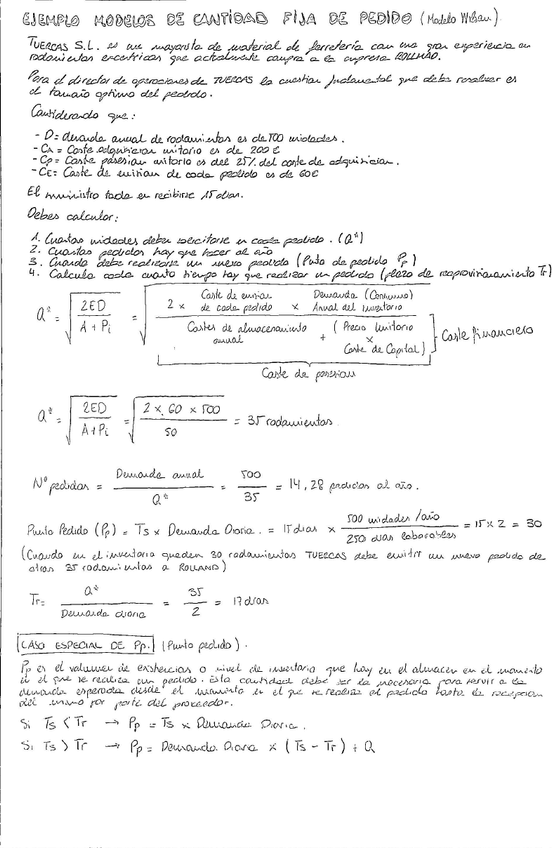 EJEMPLO MODELOS DE CANTIDAD FIJA DE PEDIDO (Modelo Wilson).
TUERCAS S.L. es un mayorista de material de ferretería con una gran experiencia en
rodamientos excéntricos que actualmente compra a la empresa ROLLMAO.
Para el director de operaciones de TUERCAS la cuestión fundamental que debe resolver es
el tamaño optimo del pedido.
Considerando que:
- D= demanda anual de rodamientos es de 500 unidades.
- CA = Coste adquisicion unitario es de 200 €
- Cp = Coste posesion unitario es del 25% del coste de adquisicion.
- CE= Coste de emision de cada pedido es de 60€
El suministro tarda en recibirse 15 dias.
Debes calcular:
1. Cuantas unidades debe solicitarse en cada pedido. (Q*)
2. Cuantos pedidos hay que hacer al año
3. Cuando debe realizarse un nuevo pedido (Punto de pedido Pp)
4. Calcula cada cuanto tiempo hay que realizar un pedido (plazo de reaprovisionamiento Tr)
Q* = √ 2ED / A + Pi = √ 2 × Coste de emision de cada pedido × Demanda (Consumo) Anual del Inventario / Costes de almacenamiento anual + (Precio Unitario × Coste de Capital) } Coste financiero
Coste de posesion
Q* = √ 2ED / A + Pi = √ 2 × 60 × 500 / 50 = 35 rodamientos.
Nº pedidos = Demanda anual / Q* = 500 / 35 = 14,28 pedidos al año.
Punto Pedido (Pp) = Ts × Demanda Diaria. = 15 dias × 500 unidades/año / 250 dias laborables = 15 × 2 = 30
(Cuando en el inventario queden 30 rodamientos TUERCAS debe emitir un nuevo pedido de
otros 35 rodamientos a ROLLMAO)
Tr = Q* / Demanda diaria = 35 / 2 = 17 dias
CASO ESPECIAL DE Pp. (Punto pedido).
Pp es el volumen de existencias o nivel de inventario que hay en el almacen en el momento
en el que se realiza un pedido. Esta cantidad debe ser la necesaria para servir a la
demanda esperada desde el momento en el que se realiza el pedido hasta la recepcion
del mismo por parte del proveedor.
Si Ts < Tr → Pp = Ts × Demanda Diaria.
Si Ts > Tr → Pp = Demanda Diaria × (Ts - Tr) + Q